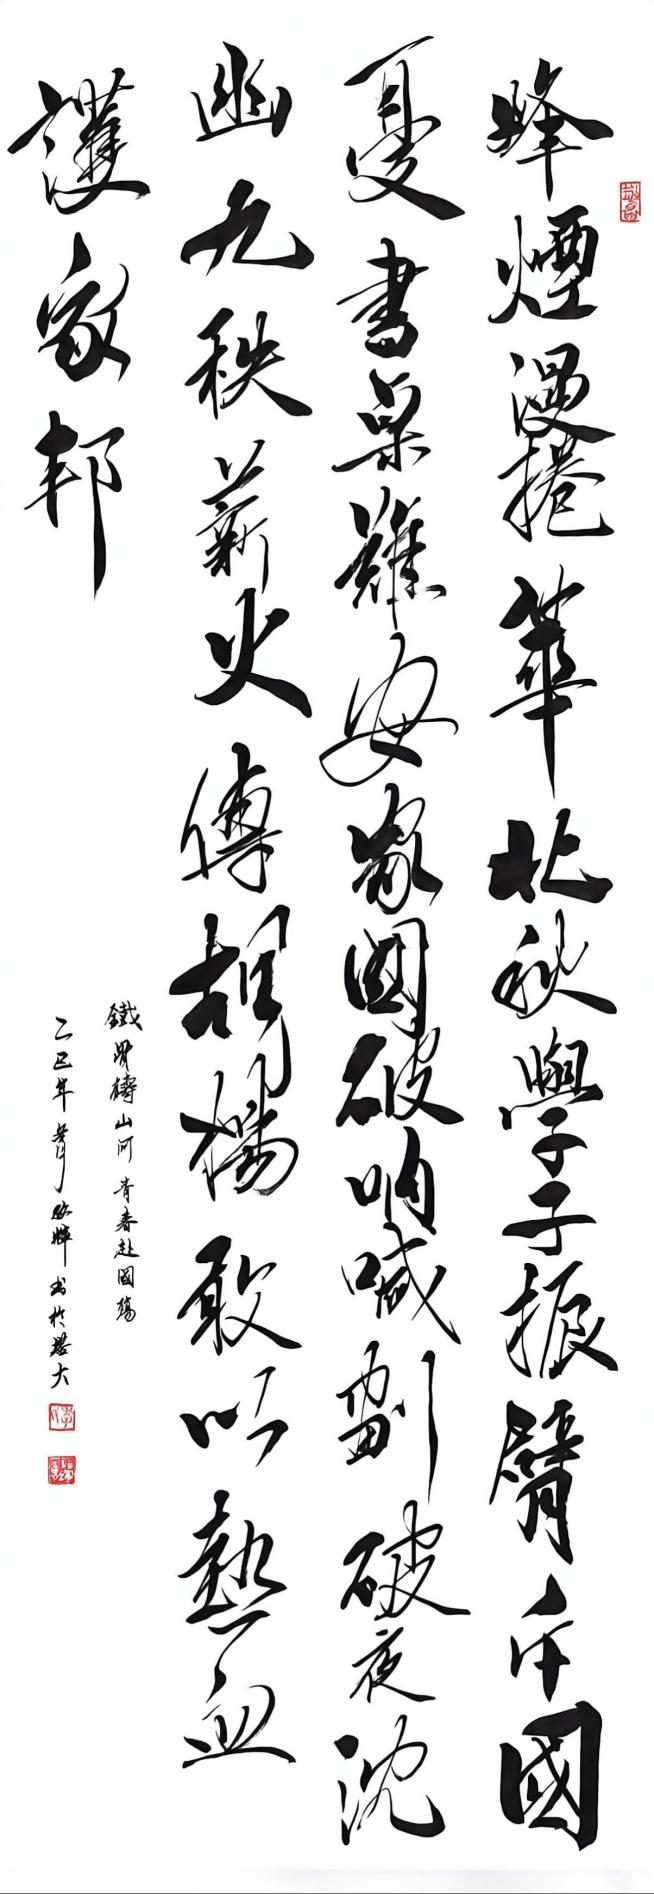 烽煙漫捲華北秋學子振臂千國
憂書桌難安家國破吶喊劃破夜沈
幽九秩薪火傳胡楊敢以熱血
護家邦
鐵骨鑄山河青春赴國殤
乙巳年 書於塔大